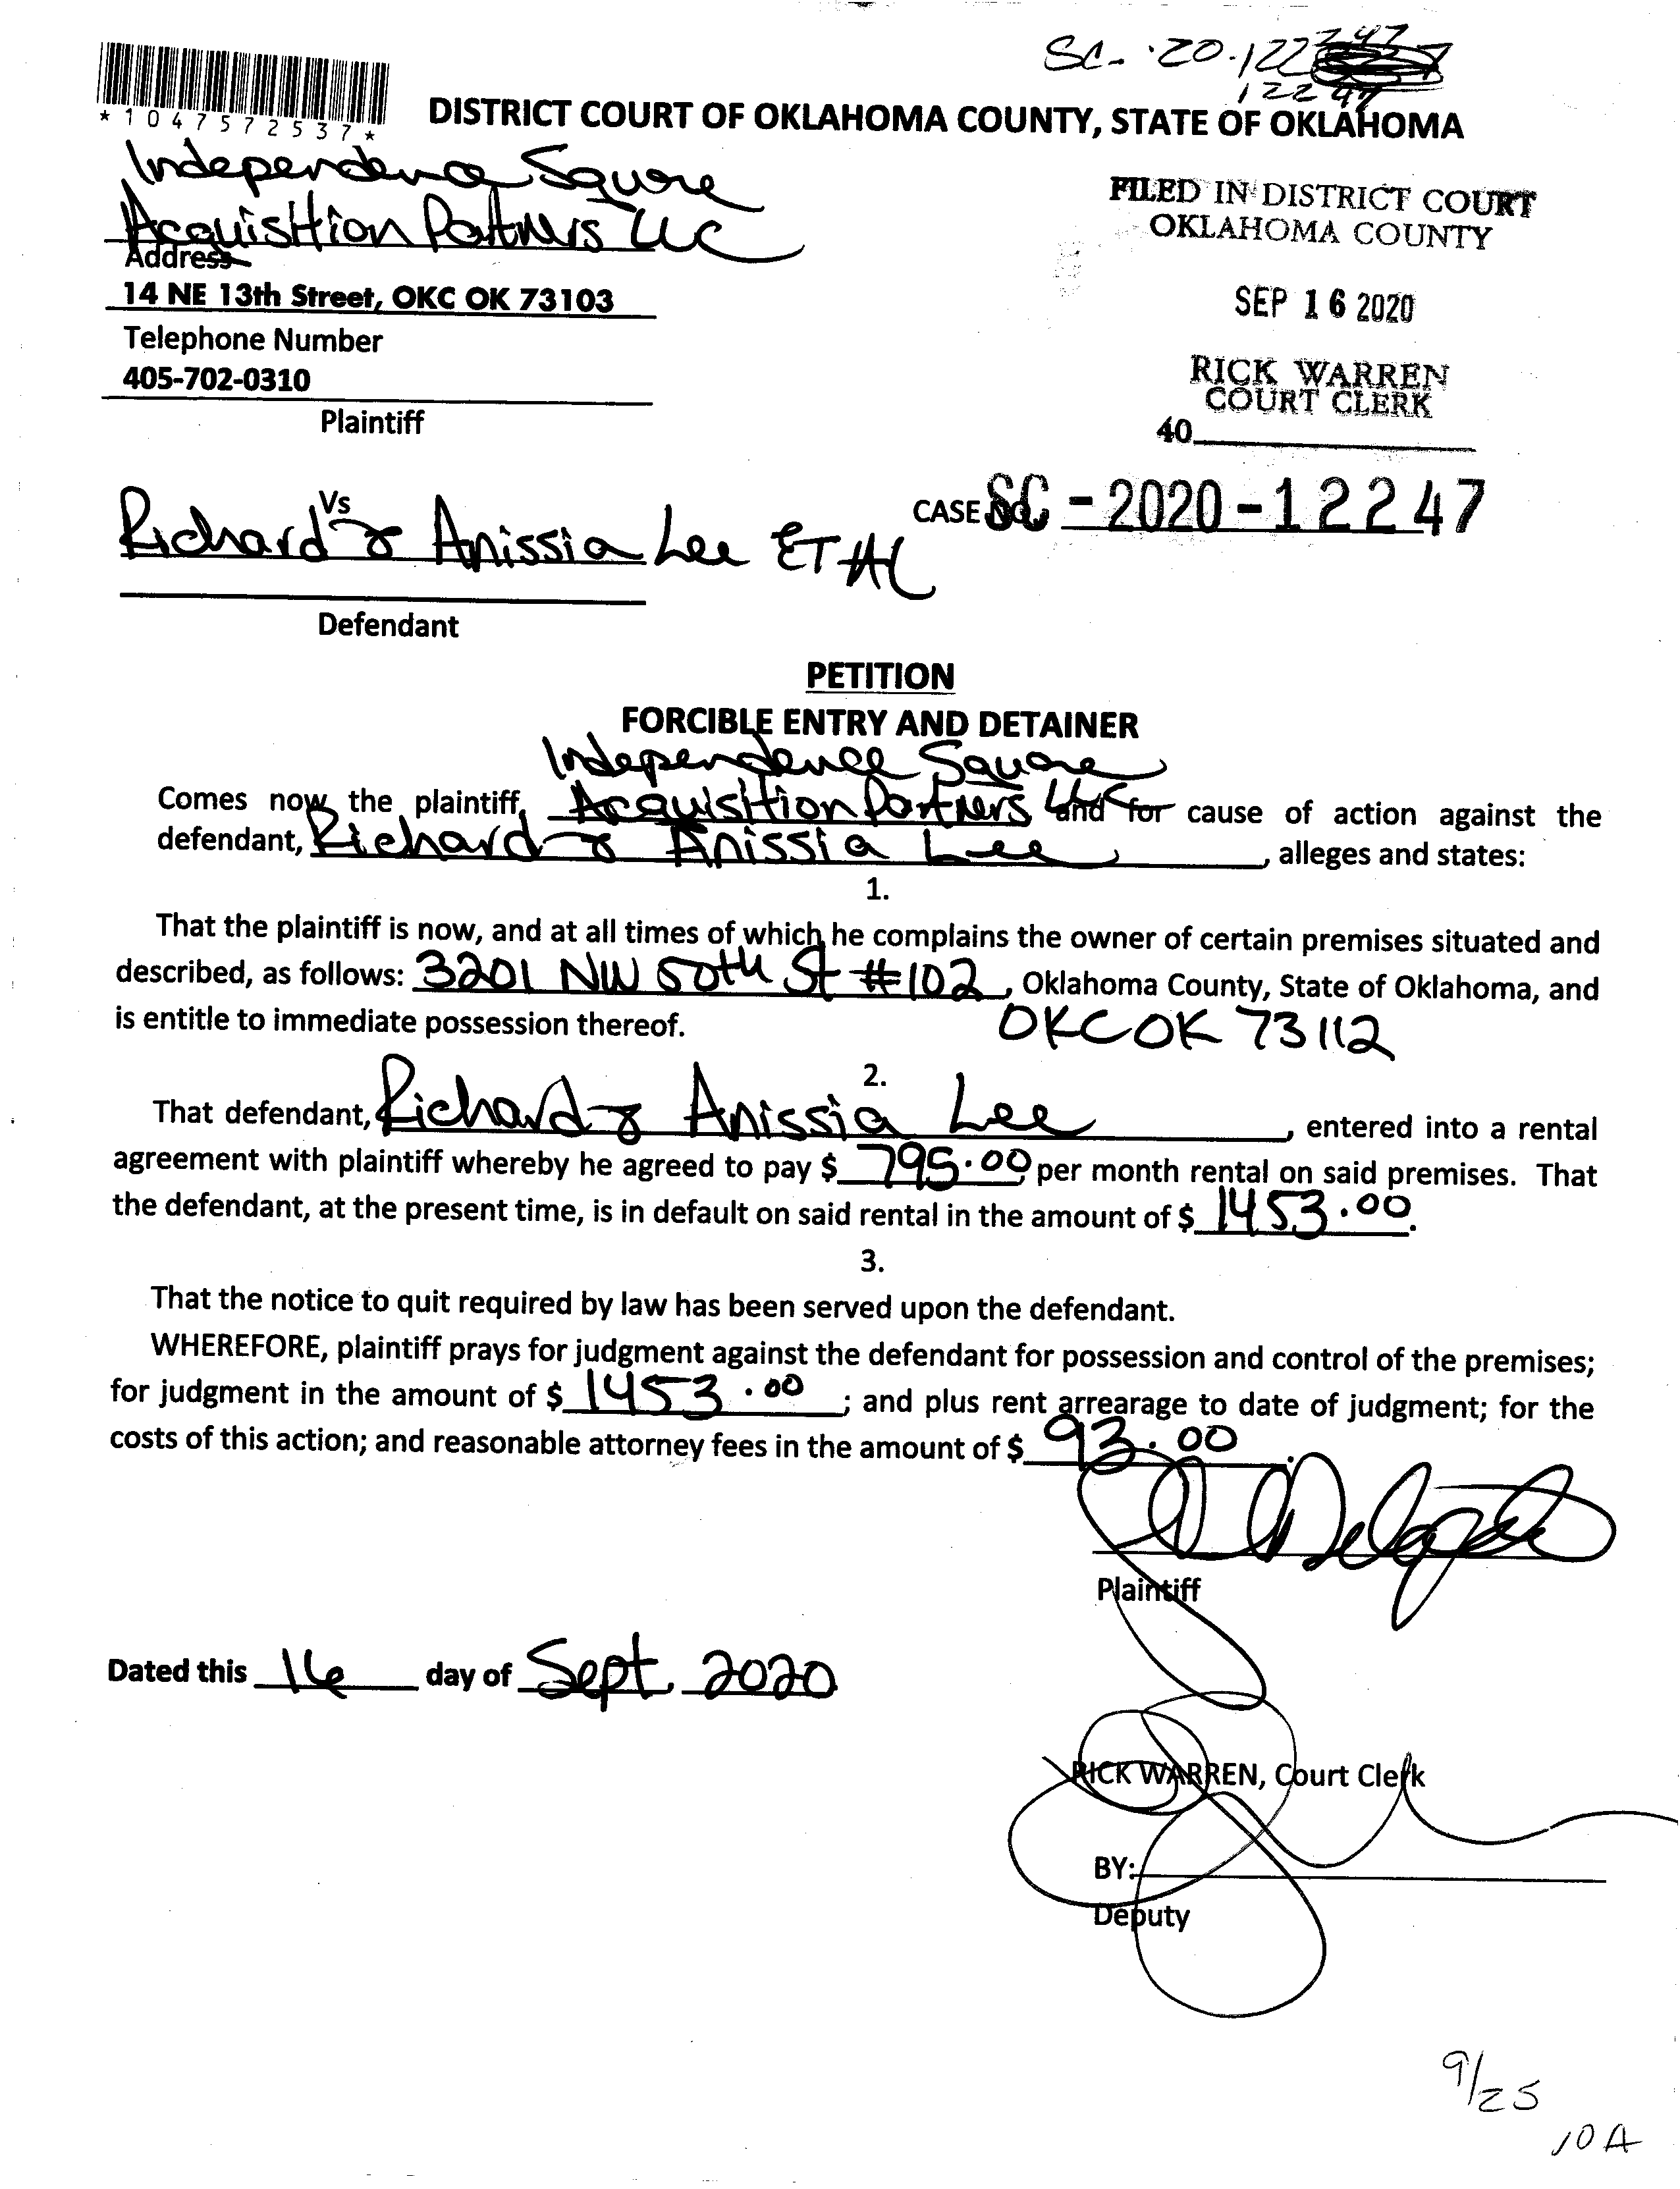 SC-20-122
12247
*1047572537*
DISTRICT COURT OF OKLAHOMA COUNTY, STATE OF OKLAHOMA
Independence Square
Acquisition Partners LLC
Address
14 NE 13th Street, OKC OK 73103
Telephone Number
405-702-0310
Plaintiff
FILED IN DISTRICT COURT
OKLAHOMA COUNTY
SEP 16 2020
RICK WARREN
COURT CLERK
40
Vs
CASE NO. SC-2020-12247
Richard & Anissia Lee ET AL
Defendant
PETITION
FORCIBLE ENTRY AND DETAINER
Independence Square
Comes now the plaintiff, Acquisition Partners LLC and for cause of action against the
defendant, Richard & Anissia Lee, alleges and states:
1.
That the plaintiff is now, and at all times of which he complains the owner of certain premises situated and
described, as follows: 3201 NW 50th St #102, Oklahoma County, State of Oklahoma, and
is entitle to immediate possession thereof. OKC OK 73112
2.
That defendant, Richard & Anissia Lee, entered into a rental
agreement with plaintiff whereby he agreed to pay $ 795.00, per month rental on said premises. That
the defendant, at the present time, is in default on said rental in the amount of $ 1453.00.
3.
That the notice to quit required by law has been served upon the defendant.
WHEREFORE, plaintiff prays for judgment against the defendant for possession and control of the premises;
for judgment in the amount of $ 1453.00; and plus rent arrearage to date of judgment; for the
costs of this action; and reasonable attorney fees in the amount of $ 93.00.
Plaintiff
Dated this 16 day of Sept. 2020
RICK WARREN, Court Clerk
BY:
Deputy
9/25
10A